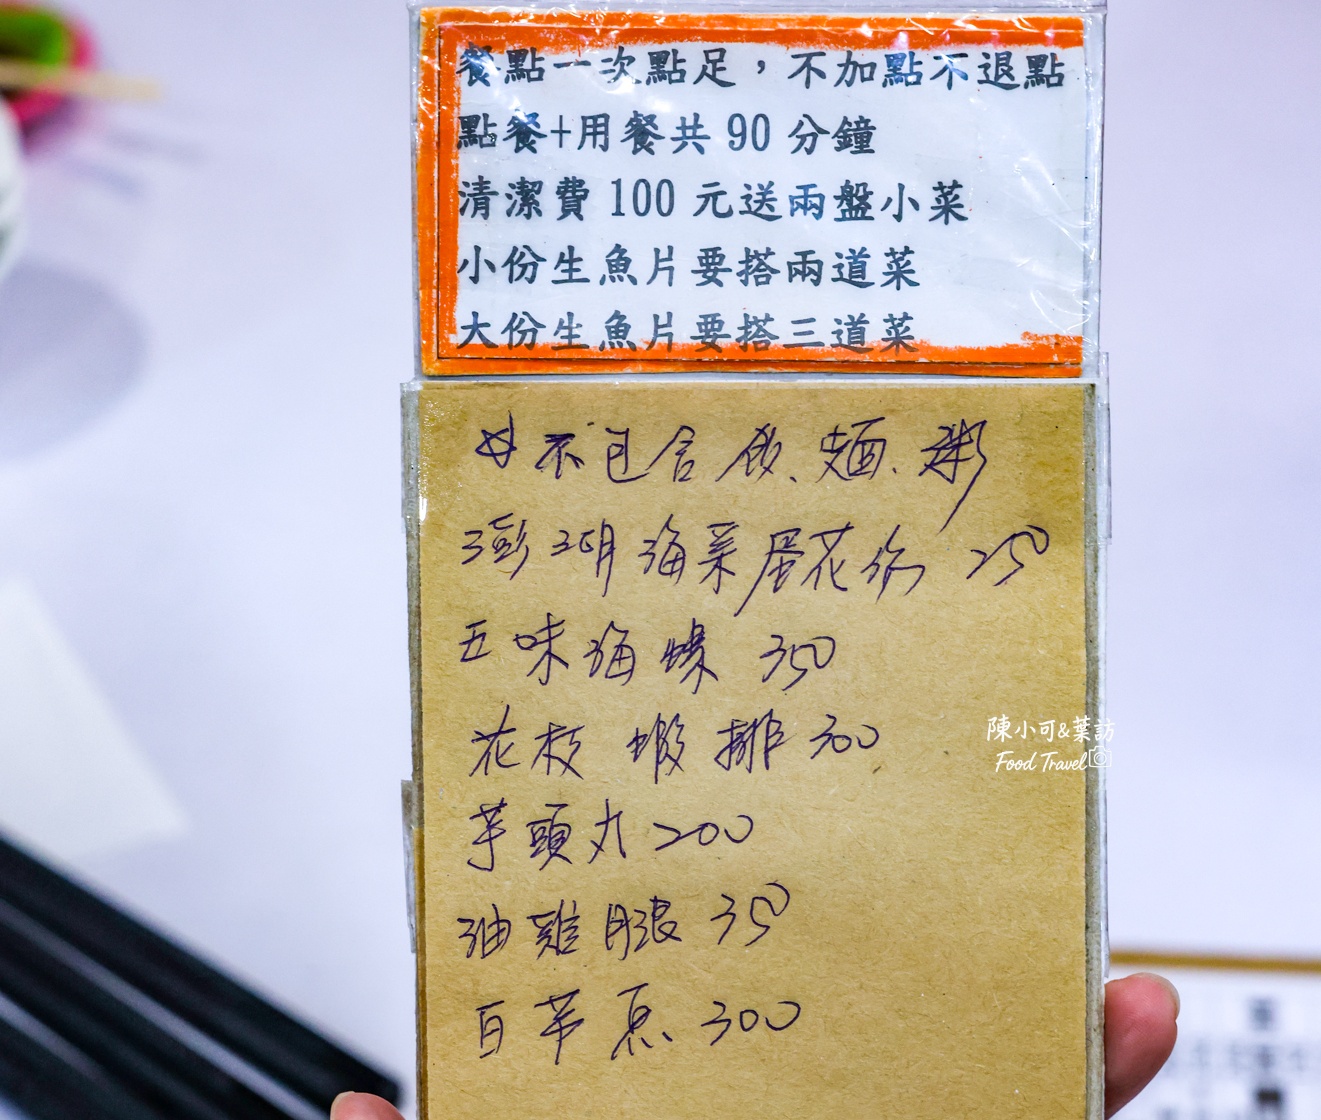 餐點一次點足，不加點不退點
點餐+用餐共 90 分鐘
清潔費 100 元送兩盤小菜
小份生魚片要搭兩道菜
大份生魚片要搭三道菜
不包含飯、麵、粥
澎湖海菜蛋花湯 250
五味海蜾 350
花枝蝦排 300
芋頭丸 200
油雞腿 350
300
陳小可&葉訪
Food Travel